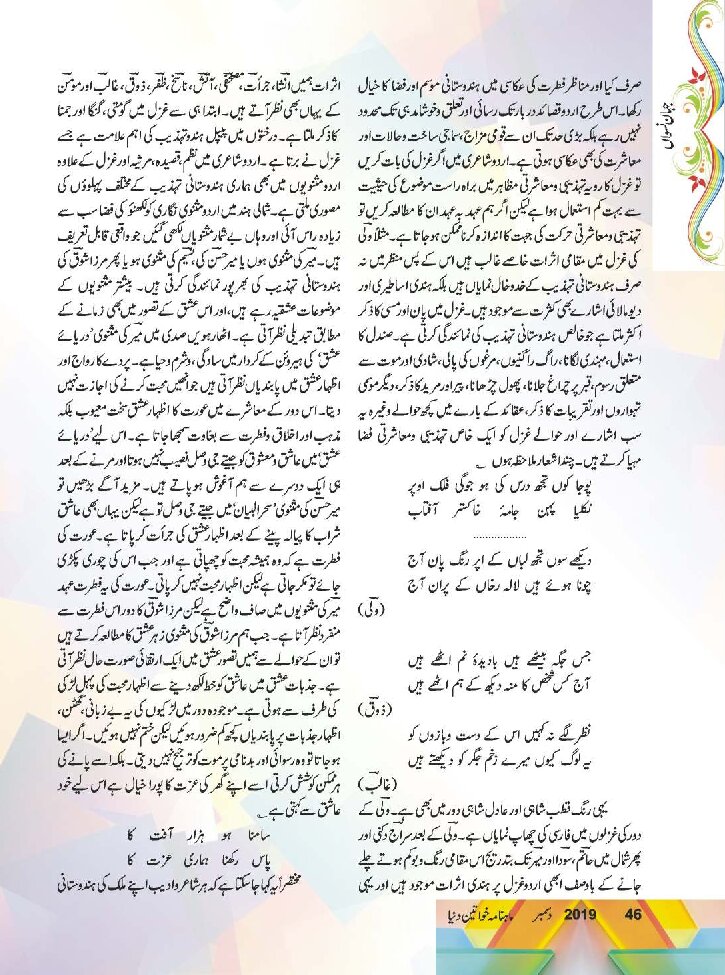 جہانِ نسواں
صرف کیا اور مناظر فطرت کی عکاسی میں ہندوستانی موسم اور فضا کا خیال
رکھا۔ اس طرح اردو قصائد دربار تک رسائی اور تعلق و خوشامد ہی تک محدود
نہیں رہے بلکہ بڑی حد تک ان سے قومی مزاج، سماجی ساخت و حالات اور
معاشرت کی بھی عکاسی ہوتی ہے۔ اردو شاعری میں اگر غزل کی بات کریں
تو غزل کا رویہ تہذیبی و معاشرتی مظاہر میں براہ راست موضوع کی حیثیت
سے بہت کم استعمال ہوا ہے لیکن اگر ہم عہد بہ عہد ان کا مطالعہ کریں تو
تہذیبی و معاشرتی حرکت کی جہت کا اندازہ کرنا ممکن ہو جاتا ہے۔ مثلاً ولی
کی غزل میں مقامی اثرات خاصے غالب ہیں اس کے پس منظر میں نہ
صرف ہندوستانی تہذیب کے خدوخال نمایاں ہیں بلکہ ہندی اساطیری اور
دیو مالائی اشارے بھی کثرت سے موجود ہیں۔ غزل میں پان اور مسی کا ذکر
اکثر ملتا ہے جو خالص ہندوستانی تہذیب کی نمائندگی کرتی ہے۔ صندل کا
استعمال، مہندی لگانا، راگ راگنیوں، مرغوں کی پالی، شادی اور موت سے
متعلق رسوم، قبر پر چراغ جلانا، پھول چڑھانا، پیر اور مرید کا ذکر، دیگر موسمی
تہواروں اور تقریبات کا ذکر، عقائد کے بارے میں کچھ حوالے وغیرہ یہ
سب اشارے اور حوالے غزل کو ایک خاص تہذیبی و معاشرتی فضا
مہیا کرتے ہیں۔ چند اشعار ملاحظہ ہوں
پوجا کوں تجھ درس کی ہو جوگی فلک اوپر
نکلیا پہن جامۂ خاکستر آفتاب
..................
دیکھے سوں تجھ لباں کے اپر رنگ پان آج
چونا ہوئے ہیں لالہ رخاں کے پران آج
(ولی)
جس جگہ بیٹھے ہیں بادیدۂ نم اٹھے ہیں
آج کس شخص کا منہ دیکھ کے ہم اٹھے ہیں
(ذوق)
نظر لگے نہ کہیں اس کے دست و بازوں کو
یہ لوگ کیوں میرے زخم جگر کو دیکھتے ہیں
(غالب)
یہی رنگ قطب شاہی اور عادل شاہی دور میں بھی ہے۔ ولی کے
دور کی غزلوں میں فارسی کی چھاپ نمایاں ہے۔ ولی کے بعد سراج دکنی اور
پھر شمال میں حاتم، سودا اور میر تک بتدریج اس مقامی رنگ و بو کم ہوتے چلے
جانے کے باوصف ابھی اردو غزل پر ہندی اثرات موجود ہیں اور یہی
اثرات ہمیں انشا، جرأت، مصحفی، آتش، ناسخ، ظفر، ذوق، غالب اور مومن
کے یہاں بھی نظر آتے ہیں۔ ابتدا ہی سے غزل میں گومتی، گنگا اور جمنا
کا ذکر ملتا ہے۔ درختوں میں پیپل ہندو تہذیب کی اہم علامت ہے جسے
غزل نے برتا ہے۔ اردو شاعری میں نظم، قصیدہ، مرثیہ اور غزل کے علاوہ
اردو مثنویوں میں بھی ہماری ہندوستانی تہذیب کے مختلف پہلوؤں کی
مصوری ملتی ہے۔ شمالی ہند میں اردو مثنوی نگاری کو لکھنؤ کی فضا سب سے
زیادہ راس آئی اور وہاں بے شمار مثنویاں لکھی گئیں جو واقعی قابل تعریف
ہیں۔ میر کی مثنوی ہوں یا میر حسن کی، نسیم کی مثنوی ہو یا پھر مرزا شوق کی
ہندوستانی تہذیب کی بھرپور نمائندگی کرتی ہیں۔ بیشتر مثنویوں کے
موضوعات عشقیہ رہے ہیں، اور اس عشق کے تصور میں بھی زمانے کے
مطابق تبدیلی نظر آتی ہے۔ اٹھارہویں صدی میں میر کی مثنوی 'دریائے
عشق' کی ہیروئن کے کردار میں سادگی، و شرم و حیا ہے۔ پردے کا رواج اور
اظہار عشق میں پابندیاں نظر آتی ہیں جو انھیں محبت کرنے کی اجازت نہیں
دیتا۔ اس دور کے معاشرے میں عورت کا اظہار عشق سخت معیوب بلکہ
مذہب اور اخلاق و فطرت سے بغاوت سمجھا جاتا ہے۔ اس لیے 'دریائے
عشق' میں عاشق و معشوق کو جیتے جی وصل نصیب نہیں ہوتا اور مرنے کے بعد
ہی ایک دوسرے سے ہم آغوش ہو پاتے ہیں۔ مزید آگے بڑھیں تو
میر حسن کی مثنوی 'سحرالبیان' میں جیتے جی وصل تو ہے لیکن یہاں بھی عاشق
شراب کا پیالہ پینے کے بعد اظہار عشق کی جرأت کر پاتا ہے۔ عورت کی
فطرت ہے کہ وہ ہمیشہ محبت کو چھپاتی ہے اور جب اس کی چوری پکڑی
جائے تو مکر جاتی ہے لیکن اظہار محبت نہیں کر پاتی۔ عورت کی یہ فطرت عہد
میر کی مثنویوں میں صاف واضح ہے لیکن مرزا شوق کا دور اس فطرت سے
منفرد نظر آتا ہے۔ جب ہم مرزا شوق کی مثنوی زہر عشق کا مطالعہ کرتے ہیں
تو ان کے حوالے سے ہمیں تصور عشق میں ایک ارتقائی صورت حال نظر آتی
ہے۔ جذبات عشق میں عاشق کو خط لکھ دینے سے اظہار محبت کی پہل لڑکی
کی طرف سے ہوتی ہے۔ موجودہ دور میں لڑکیوں کی یہ بے زبانی، گھٹن،
اظہار جذبات پر پابندیاں کچھ کم ضرور ہوئیں لیکن ختم نہیں ہوئیں۔ اگر ایسا
ہو جاتا تو وہ رسوائی اور بدنامی پر موت کو ترجیح نہیں دیتی۔ بلکہ اسے پانے کی
ہر ممکن کوشش کرتی اسے اپنے گھر کی عزت کا پورا خیال ہے اس لیے خود
عاشق سے کہتی ہے
سامنا ہو ہزار آفت کا
پاس رکھنا ہماری عزت کا
مختصراً یہ کہا جا سکتا ہے کہ ہر شاعر و ادیب اپنے ملک کی ہندوستانی
ماہنامہ خواتین دنیا دسمبر 2019 46